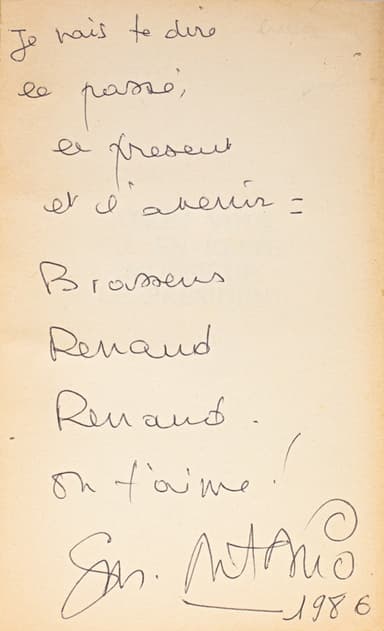 Je vais te dire
le passé,
le present
et l'avenir =
Brassens
Renaud
Renaud.
on t'aime !
San. Antonio
1986